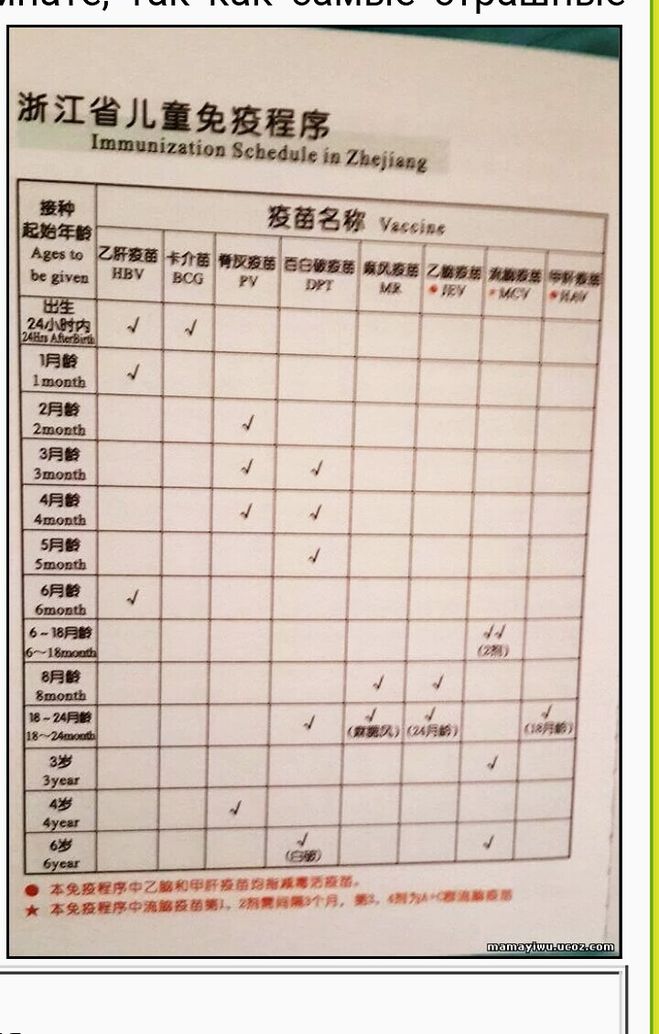 так как самые страшные
浙江省儿童免疫程序
Immunization Schedule in Zhejiang
接种
起始年龄
Ages to
be given
疫苗名称 Vaccine
乙肝疫苗 HBV
卡介苗 BCG
脊灰疫苗 PV
百白破疫苗 DPT
麻风疫苗 MR
乙脑疫苗 ●JEV
流脑疫苗 ★MCV
甲肝疫苗 ●HAV
出生
24小时内
24Hrs AfterBirth
√ √
1月龄
1month
√
2月龄
2month
√
3月龄
3month
√ √
4月龄
4month
√ √
5月龄
5month
√
6月龄
6month
√
6~18月龄
6~18month
√√
(2剂)
8月龄
8month
√ √
18~24月龄
18~24month
√ √ √ √
(麻腮风) (24月龄) (18月龄)
3岁
3year
√
4岁
4year
√
6岁
6year
√ √
(白破)
● 本免疫程序中乙脑和甲肝疫苗均指减毒活疫苗。
★ 本免疫程序中流脑疫苗第1、2剂需间隔3个月，第3、4剂为A+C群流脑疫苗
mamayiwu.ucoz.com